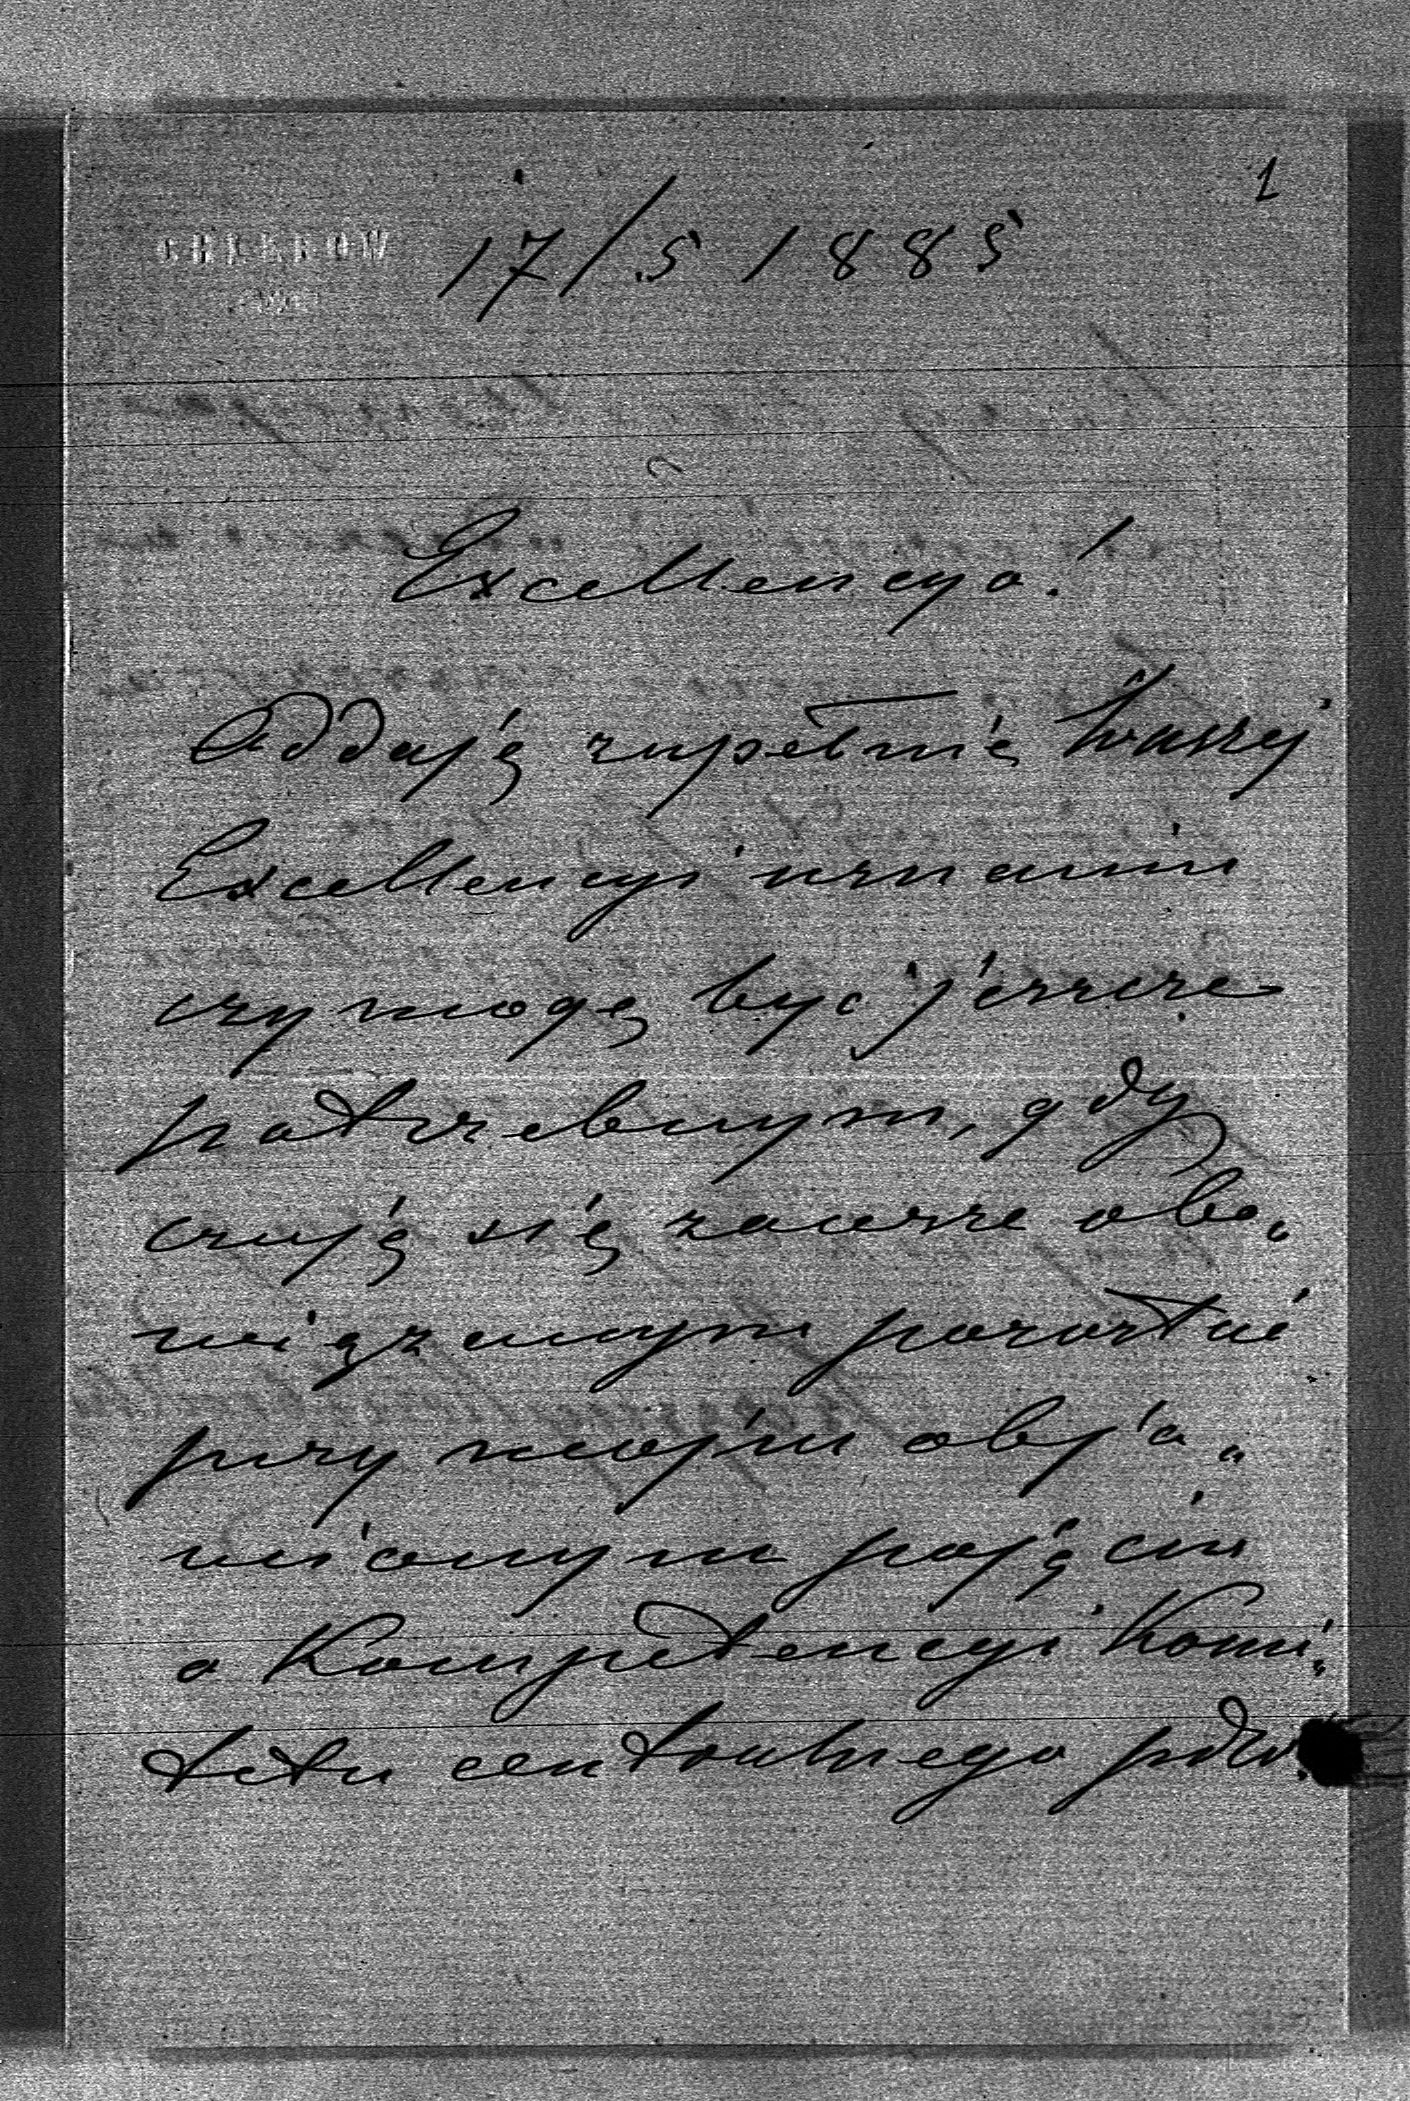 1
17/5 1885
Excellencyo!
Oddaję zupełnie Waszej
Excellencyi uznaniu
czy mogę być jeszcze
potrzebnym, gdy
czuję się zawsze obo„
wiązanym pozostać
przy mojém obja„
wionym pojęciu
o Kompetencyi Komi„
tetu centralnego